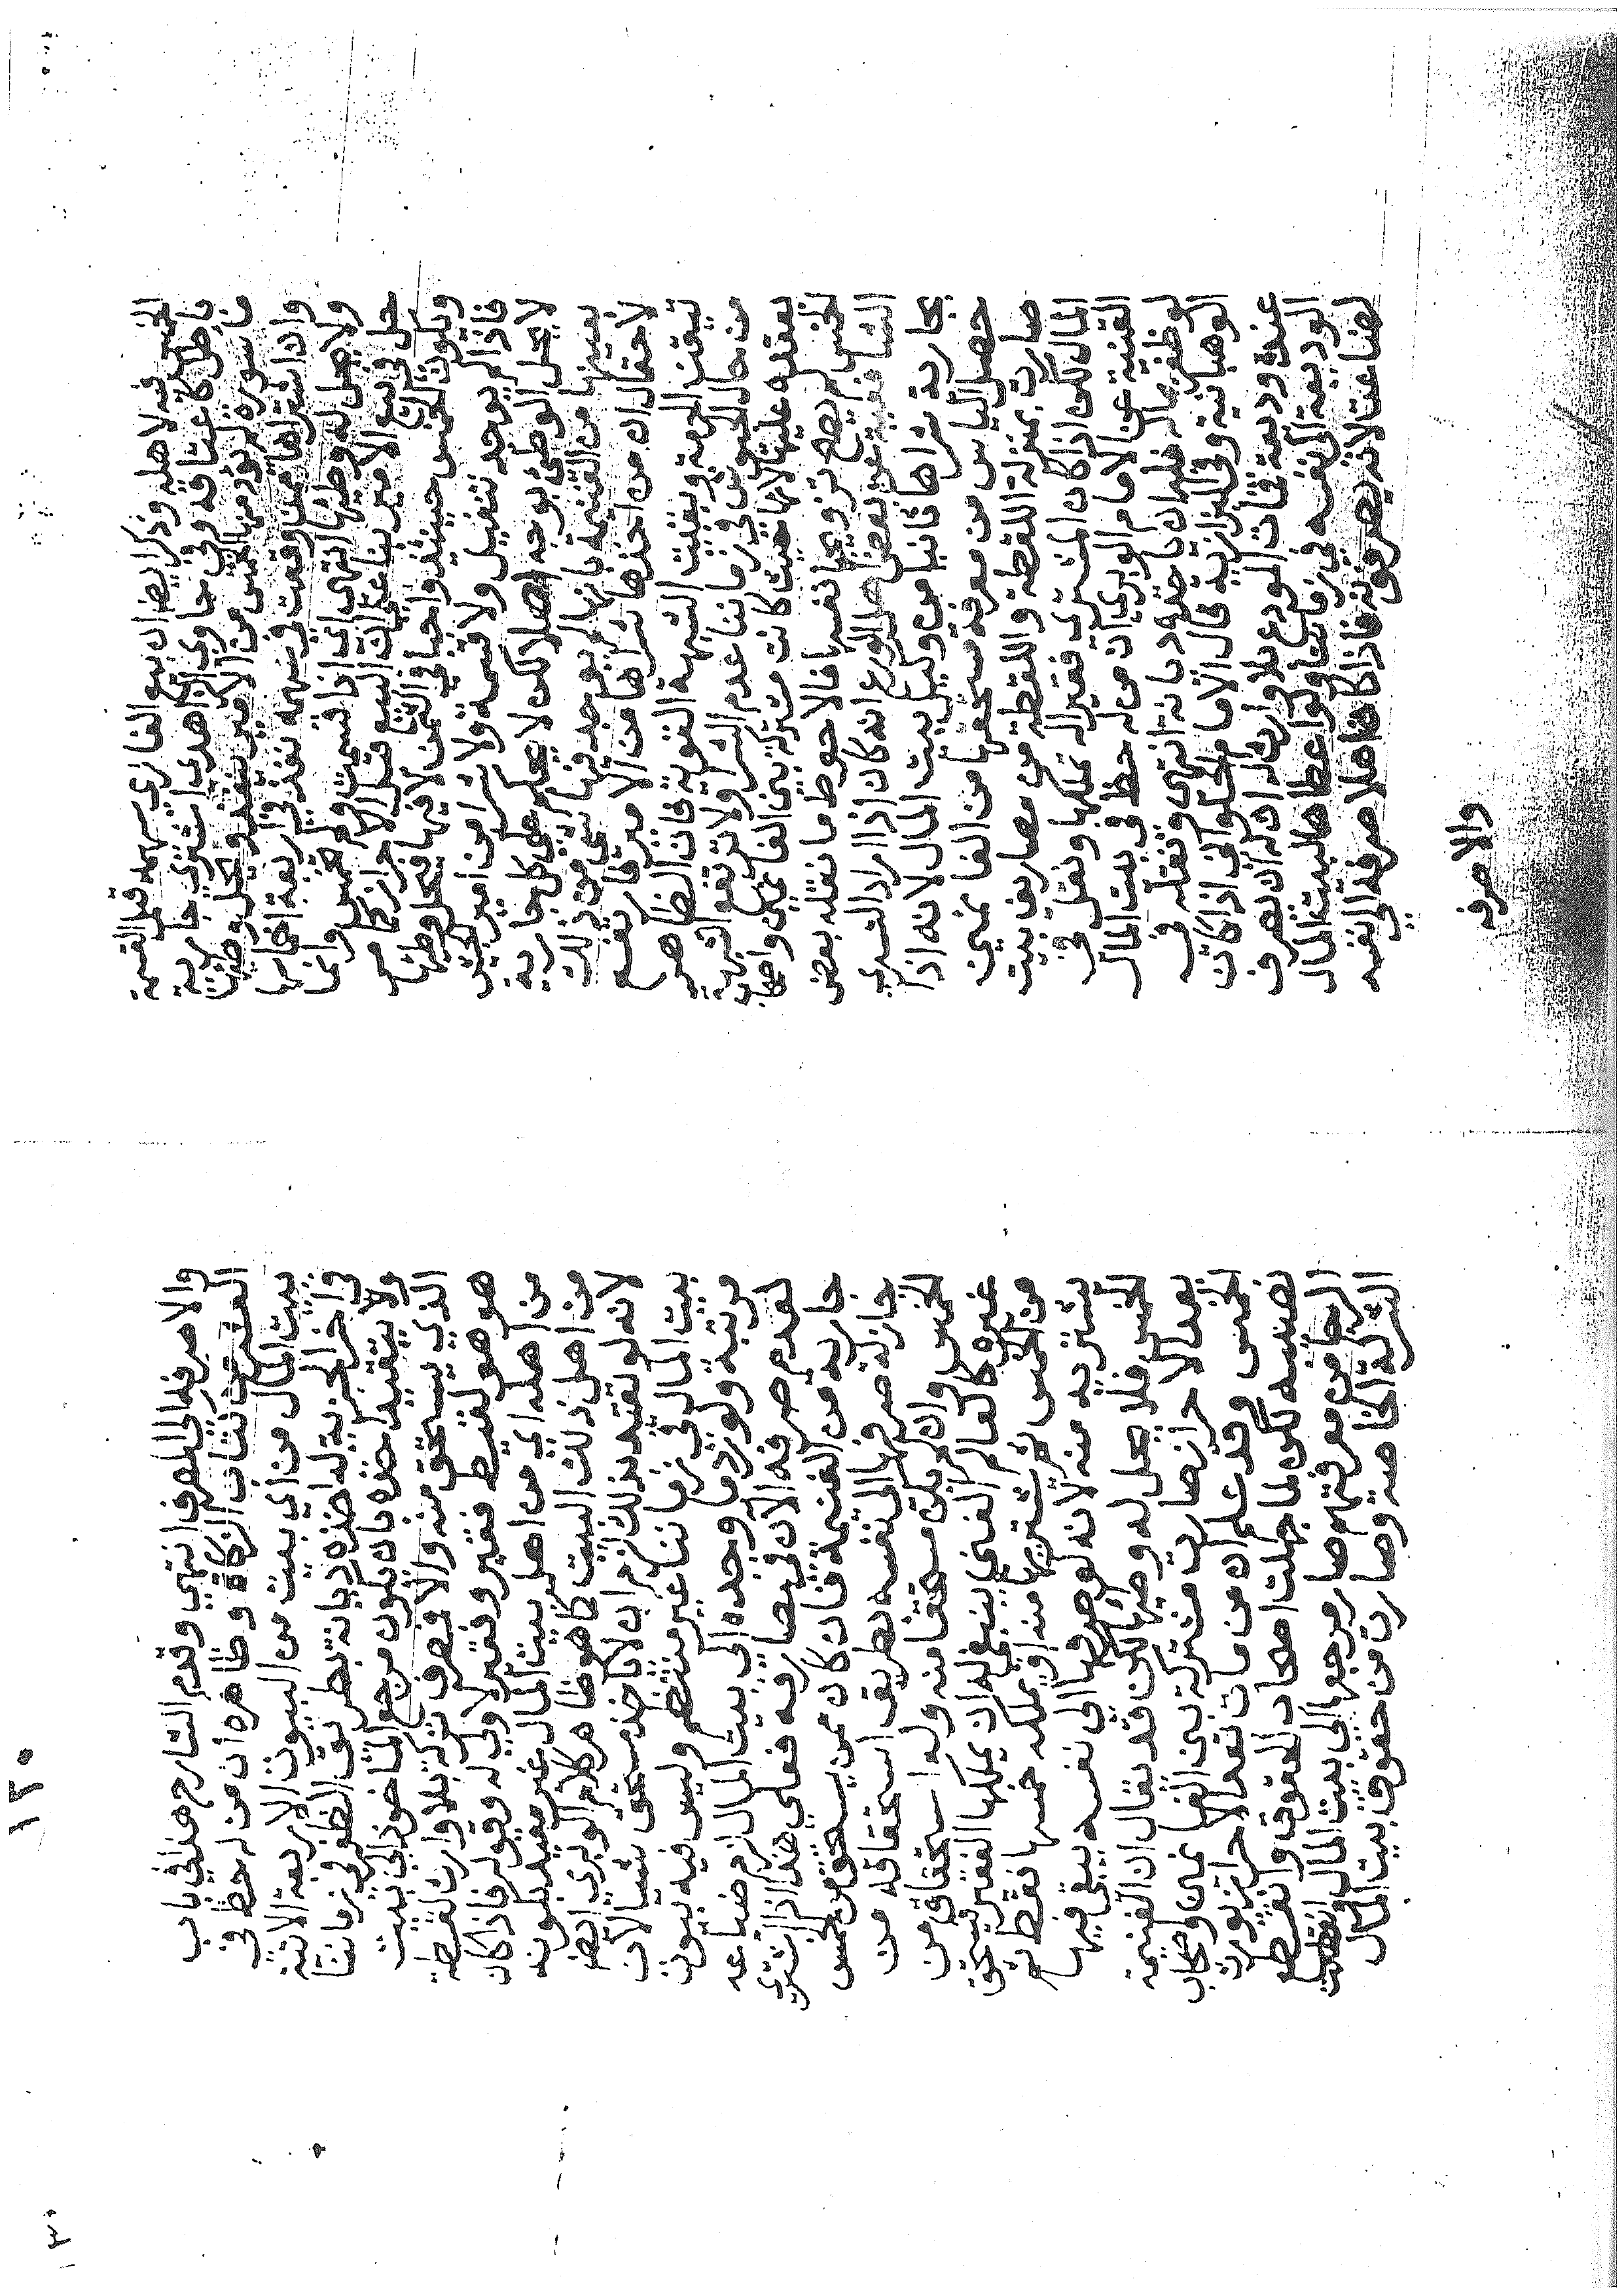 الخمس فيه لاهله وذكر ايضا ان بيع الغازي سهمه قبل القسمة
باطل كاعتاقه وفي حاوي الزاهدي اشترى جارية
ماسورة لم يؤد منها الخمس من الامير ينفذ ويحل وطئها
وان اشتراها ممن وقعت في سهمه نفذ في اربعة اخماسها
ولا يحل له وطئها انتهى اي اذا قسمت ولم تخمس وانما
حل في بيع الامير بناء على ان البيع قبل الاحراز كما مر
ويكون الخمس حينئذ واجبا في الثمن لا فيها فيحل وطئها
فاذا لم يوجد تنفيل ولا قسمة ولا شرا من امير الجيش
لا يحل الوطئ بوجه اصلا لكن لا يحكم على كل جارية
بعينها من الغنيمة بانها لم يوجد فيها شئ من ذلك
لاحتمال ان من اخذها شراها من الامير فارتفع
تيقن الحرمة وبقيت الشبهة القوية فان الظاهر
من حال الجيوش في زماننا عدم الشرا ولا ترتفع الشبهة
بعقده عليها لانها حيث كانت مشتركة بين الغانمين واصحاب
الخمس لم يصح تزويجها نفسها فالاحوط ما نقله بعض
الشافعية عن بعض اهل الورع انه كان اذا اراد التسري
بجارية شراها ثانيا من وكيل بيت المال لانه اذا
حصل الياس من معرفة مستحقها من الغانمين
صارت بمنزلة اللقطة واللقطة من مصارف بيت
المال لكن اذا كان المشتري فقيرا له تملكها ونقل في
القنية عن الامام الوبري ان من له حظ في بيت المال
لو ظفر بمال فله ان ياخذه ديانة انتهى ونقله في
الوهبانية وفي البزازية قال الامام الحلواني اذا كان
عنده وديعة فمات المودع بلا وارث له ان يصرف
الوديعة الى نفسه في زماننا ولو اعطاها لبيت المال
لضاعت لانه لا يصرفونه فاذا كان اهلا صرفه الى نفسه
والا صرفه
١٣٠
والا صرفه الى المصرف انتهى وقدم الشارح هذا في باب
العشر ابيات الزكاة وظاهره ان من له حظ في
بيت المال من اي بيت من البيوت الاربعة الاتية
في اخر الجزية له اخذه ديانة بطريق الظفر في زماننا
ولا يتقيد اخذه بان يكون مرجع الماخوذ الى بيت
الذي يستحق منه والا فصرف تركة بلا وارث لقيط
هو لقيط فقير وفقير لا ولي له وقوله فاذا كان
من اهله اي من اهل بيت المال غير مقيد بكونه
من اهل ذلك البيت كما هو ظاهر كلام الوبري ايضا
لانه لو تقيد بذلك لزم ان لا ياخذ مستحق شيئا لان
بيت المال في زماننا غير منتظم وليس فيه بيوت
مرتبة ولو رد ما وجده الى بيت المال لزم ضياعه
لعدم صرفه الان في مصارفه فعلى هذا اذا اشترى
جارية من الغنيمة فان كان ممن يستحق من الخمس
جاز له صرفها الى نفسه بطريق استحقاقه من
الخمس وان لم يكن مستحقا منه وله استحقاق من
غيره كالعالم الغني ينبغي له ان يملكها لفقير مستحق
من الخمس ثم يشتريها منه او يملكه خمسها فقط ثم
يشتريه منه لانه لو صرفها الى نفسه يبقى فيها
الخمس فلا يحل له وطئها لكن قد يقال ان الغنيمة
بعد الاحراز صارت مشتركة بين الغانمين واصحاب
الخمس وقد علم ان من مات بعد الاحراز يورث
نصيبه لكن لما جهلت اصحاب الحقوق وانقطع
الرجا من معرفتهم صار مرجعها الى بيت المال وانقطعت
الشركة الخاصة وصارت من حقوق بيت المال